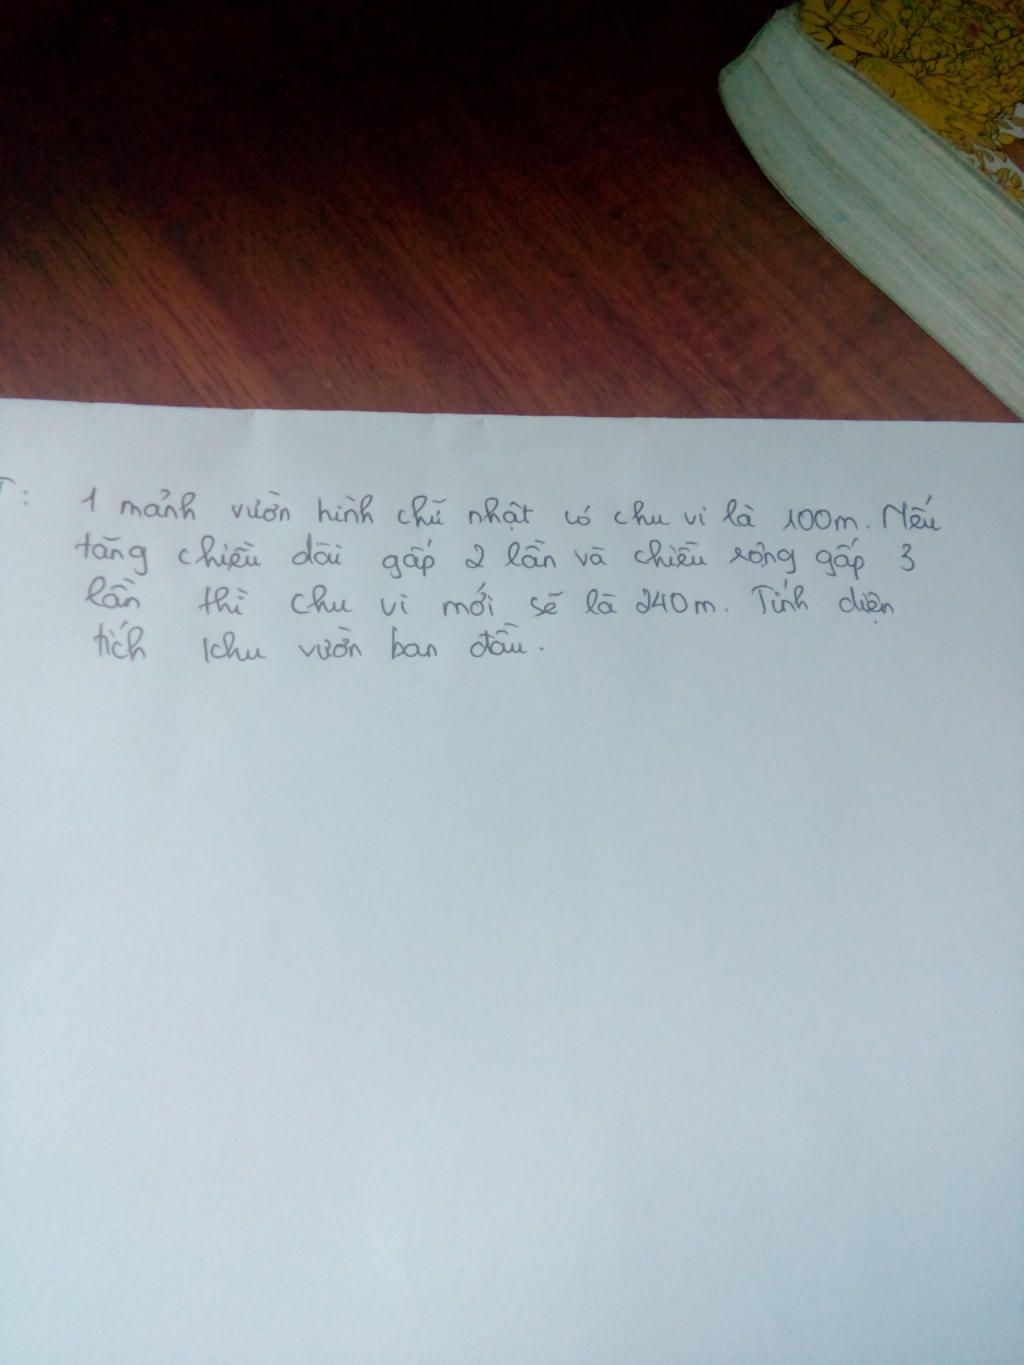 : 1 mảnh vườn hình chữ nhật có chu vi là 100m. Nếu
tăng chiều dài gấp 2 lần và chiều rộng gấp 3
lần thì chu vi mới sẽ là 240m. Tính diện
tích khu vườn ban đầu.